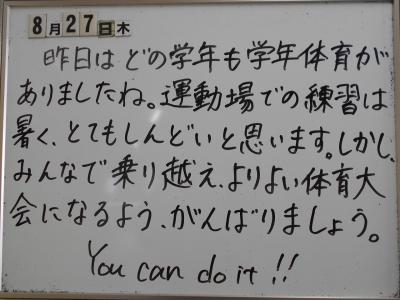 8月27日木
昨日はどの学年も学年体育が
ありましたね。運動場での練習は
暑く、とてもしんどいと思います。しかし、
みんなで乗り越え、よりよい体育大
会になるよう、がんばりましょう。
You can do it !!